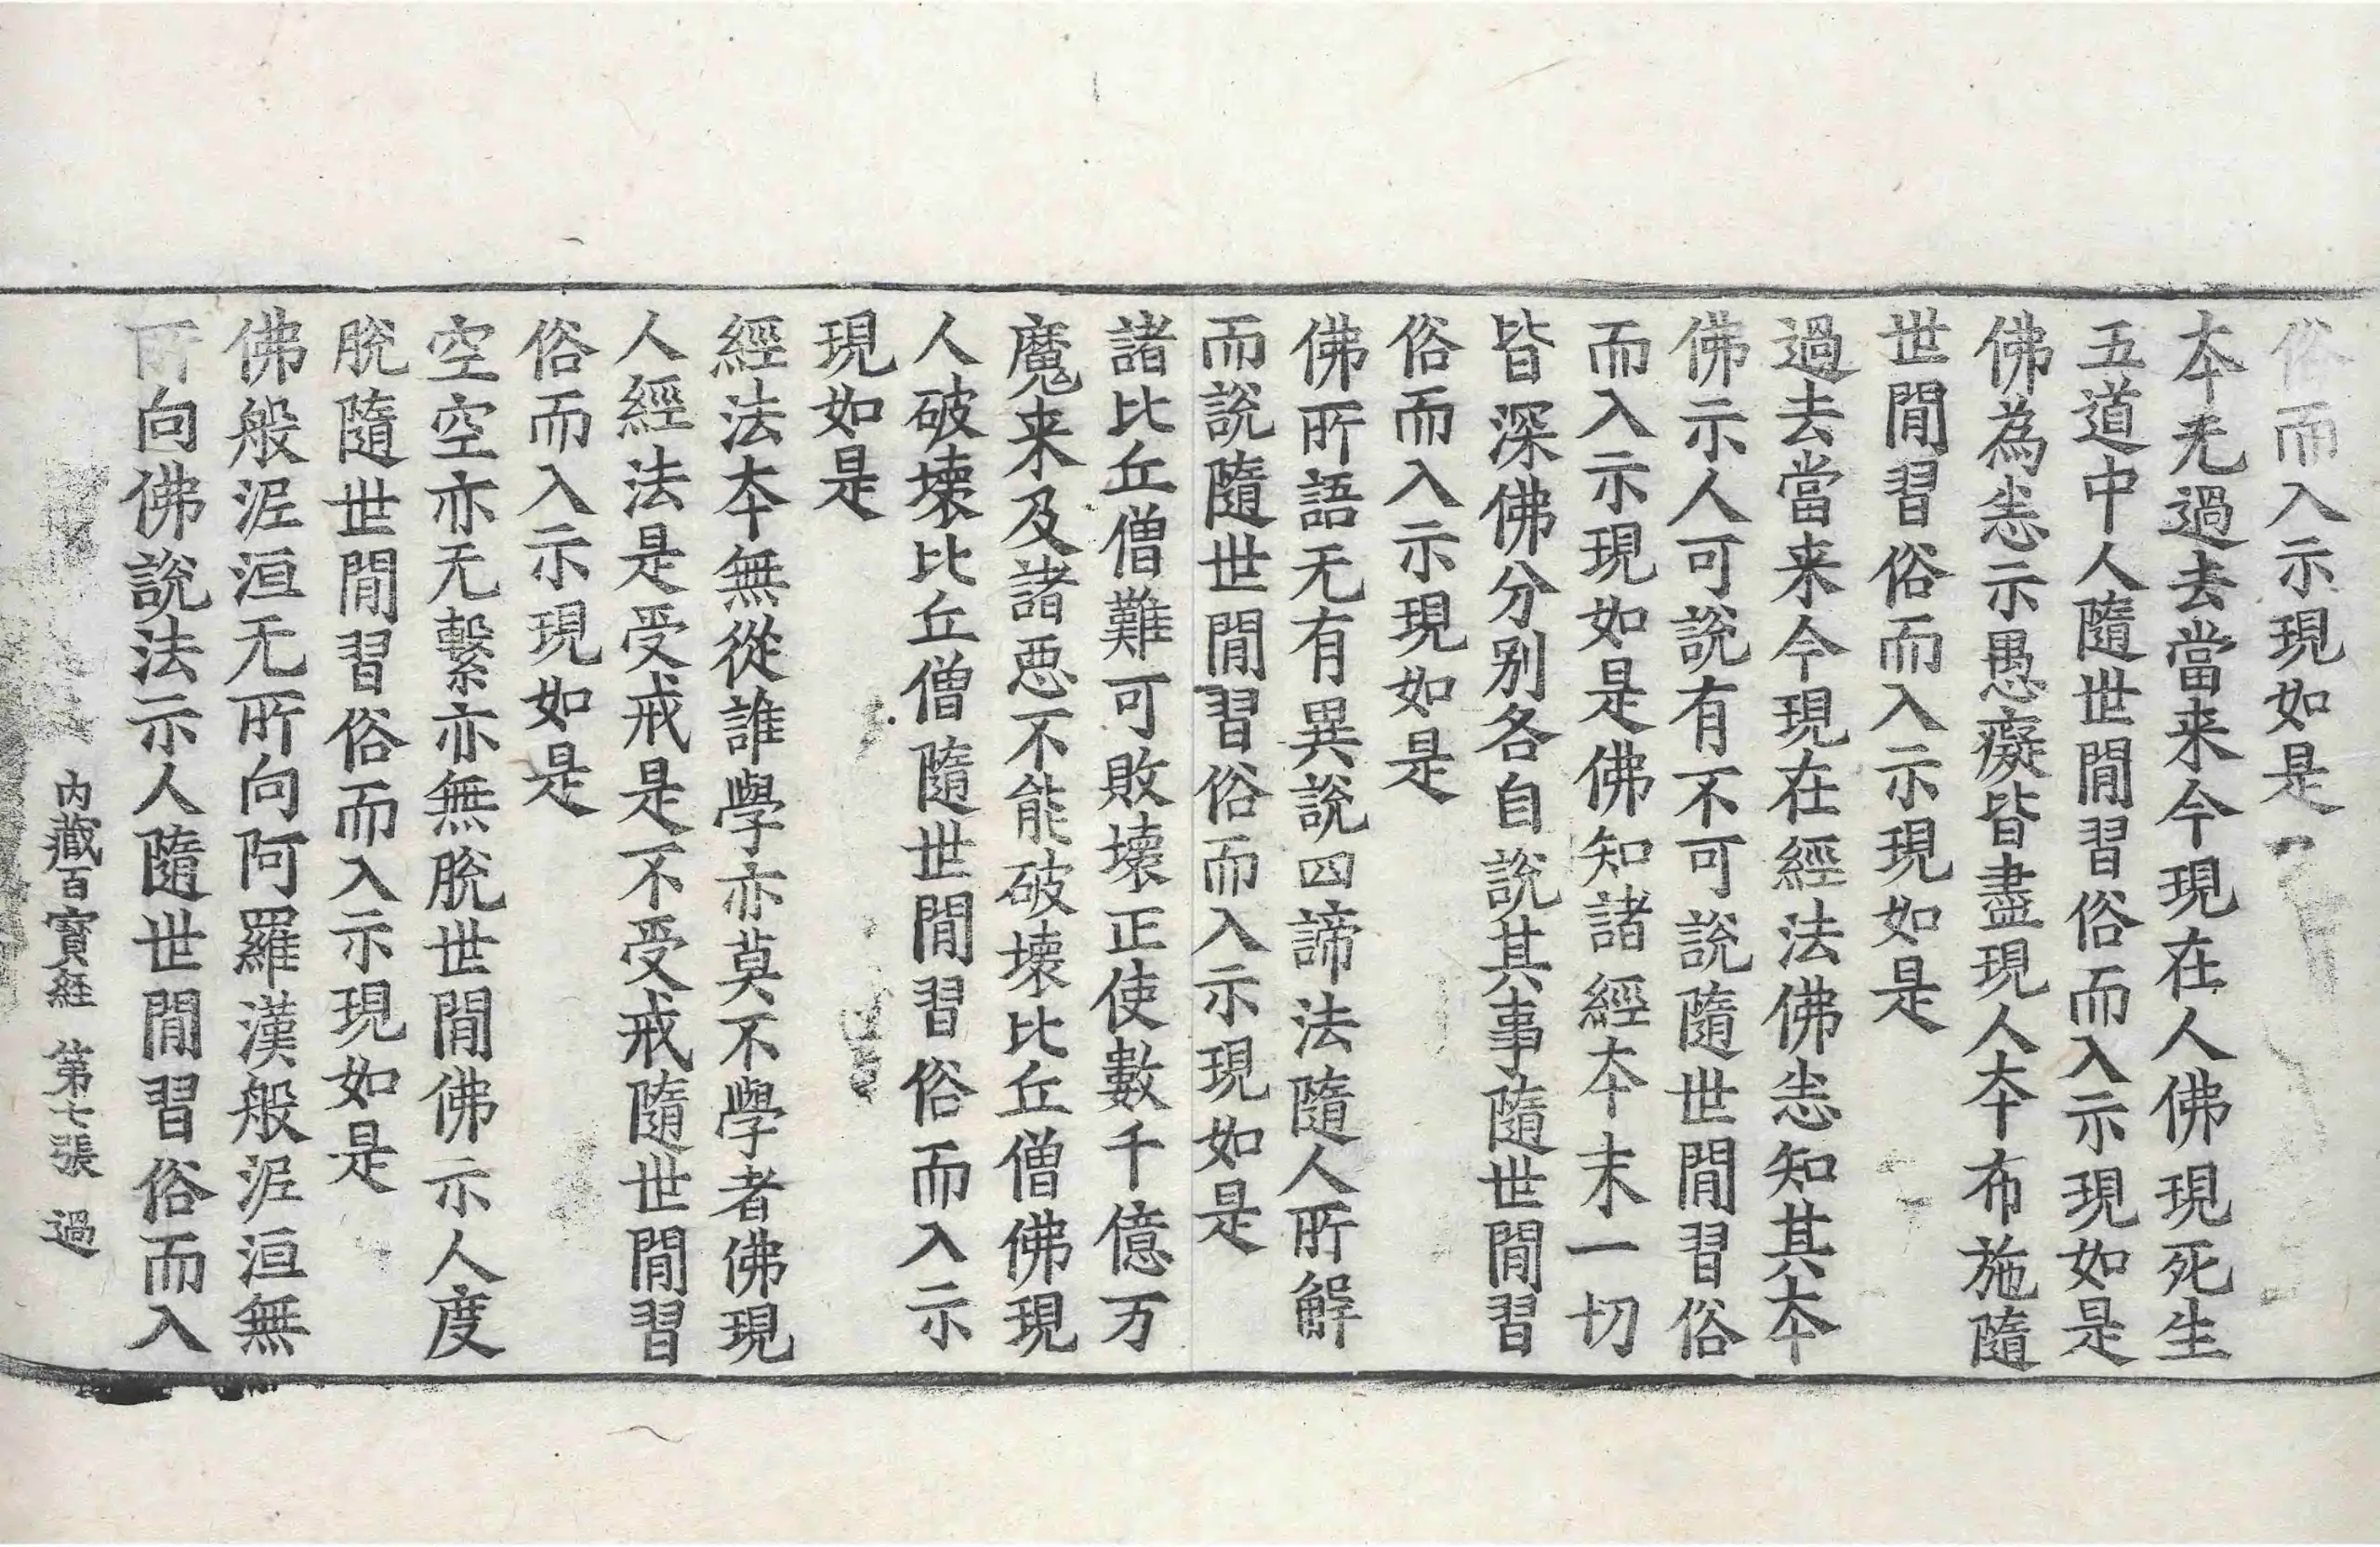 俗而入示現如是
本无過去當来今現在人佛現死生
五道中人隨世閒習俗而入示現如是
佛為恙示愚癡皆盡現人本布施隨
世閒習俗而入示現如是
過去當来今現在經法佛恙知其本
佛示人可說有不可說隨世閒習俗
而入示現如是佛知諸經本末一切
皆深佛分别各自說其事隨世閒習
俗而入示現如是
佛所語无有異說四諦法隨人所解
而說隨世閒習俗而入示現如是
諸比丘僧難可敗壞正使數千億万
魔来及諸惡不能破壞比丘僧佛現
人破壊比丘僧隨世閒習俗而入示
現如是
經法本無從誰學亦莫不學者佛現
人經法是受戒是不受戒隨世閒習
俗而入示現如是
空空亦无繫亦無脫世閒佛示人度
脫隨世閒習俗而入示現如是
佛般泥洹无所向阿羅漢般泥洹無
所向佛說法示人隨世閒習俗而入
内藏百寶經 第七張 過